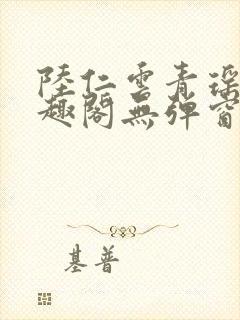 陸仁雲青瑶
趣閣無彈窗
基普